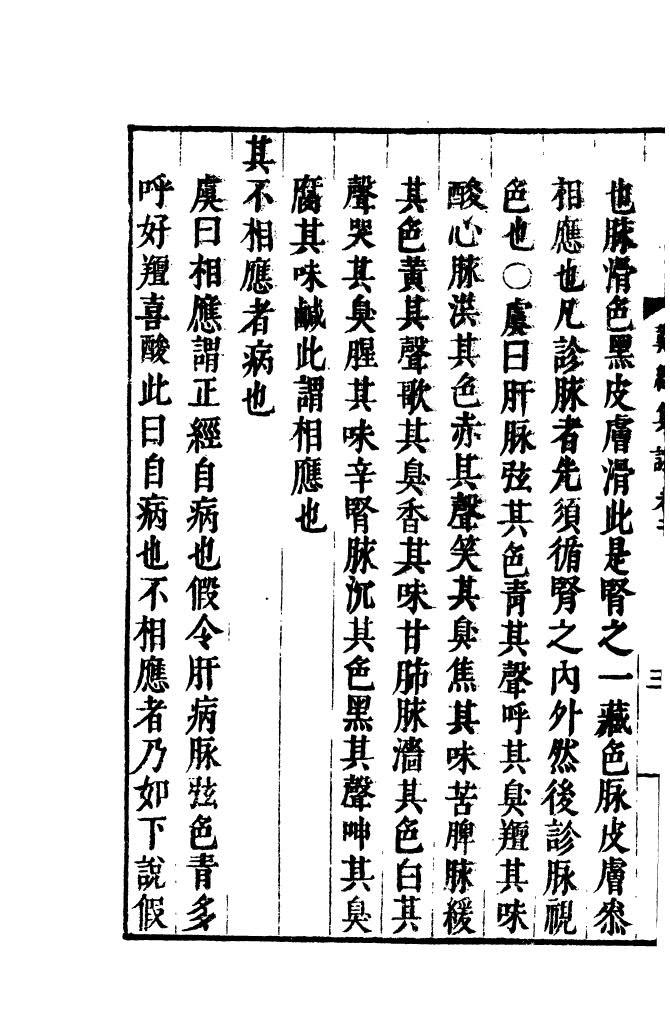 也脉滑色黑皮膚滑此是腎之一藏色脉皮膚叅
相應也凡診脉者先須循腎之内外然後診脉視
色也〇虞曰肝脉弦其色青其聲呼其臭羶其味
酸心脉洪其色赤其聲笑其臭焦其味苦脾脉緩
其色黃其聲歌其臭香其味甘肺脉濇其色白其
聲哭其臭腥其味辛腎脉沉其色黑其聲呻其臭
腐其味鹹此謂相應也
其不相應者病也
虞曰相應謂正經自病也假令肝病脉弦色青多
呼好羶喜酸此曰自病也不相應者乃如下說假
三